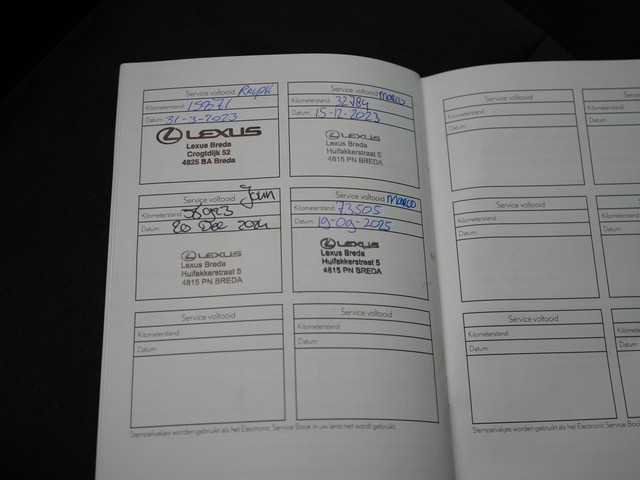 Service voltooid Ralph
Kilometerstand: 15871
Datum: 31-3-2023
LEXUS
Lexus Breda
Crogtdijk 52
4825 BA Breda
Service voltooid Marco
Kilometerstand: 32784
Datum: 15-12-2023
LEXUS
Lexus Breda
Huifakkerstraat 5
4815 PN BREDA
Service voltooid
Kilometerstand:
Datum: 20 Dec 2024
LEXUS
Lexus Breda
Huifakkerstraat 5
4815 PN BREDA
Service voltooid Marco
Kilometerstand: 73505
Datum: 19-09-2025
LEXUS
Lexus Breda
Huifakkerstraat 5
4815 PN BREDA
Service voltooid
Kilometerstand:
Datum:
Service voltooid
Kilometerstand:
Datum:
Stempelvakjes worden gebruikt als het Electronic Service Book in uw land niet wordt gebruikt.
Service voltooid
Kilometerstand:
Datum:
Service voltooid
Kilometerstand:
Datum:
Service voltooid
Kilometerstand:
Datum:
Stempelvakjes worden gebruikt als het Electronic Service Boo